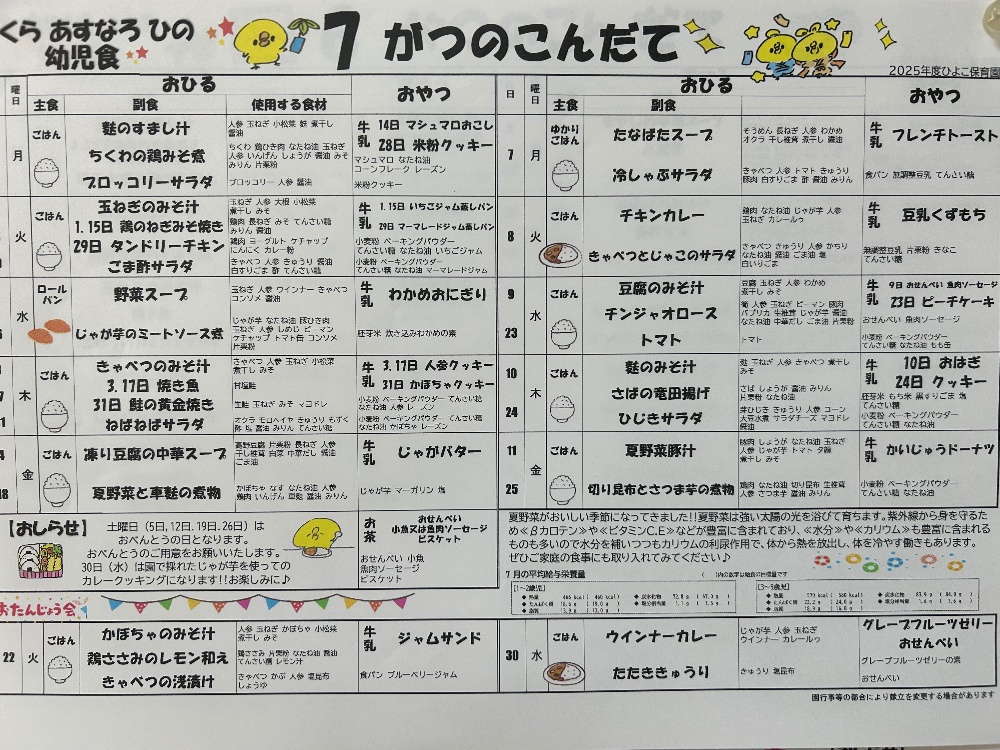 くら あすなろ ひの
幼児食
7 がつのこんだて
2025年度ひよこ保育園
曜日
おひる
おやつ
主食
副食
使用する食材
月
ごはん
麩のすまし汁
人参 玉ねぎ 小松菜 麩 煮干し
醤油
ちくわの鶏みそ煮
ちくわ 鶏ひき肉 なたね油 玉ねぎ
人参 いんげん しょうが 醤油 みそ
みりん 片栗粉
ブロッコリーサラダ
ブロッコリー 人参 醤油
牛乳
14日 マシュマロおこし
28日 米粉クッキー
マシュマロ なたね油
コーンフレーク レーズン
米粉クッキー
火
ごはん
玉ねぎのみそ汁
玉ねぎ 人参 大根 小松菜
煮干し みそ
1.15日 鶏のねぎみそ焼き
鶏肉 長ねぎ みそ てんさい糖
みりん 醤油
29日 タンドリーチキン
鶏肉 ヨーグルト ケチャップ
にんにく カレー粉
ごま酢サラダ
きゃべつ 人参 きゅうり 醤油
白すりごま 酢 てんさい糖
牛乳
1.15日 いちごジャム蒸しパン
29日 マーマレードジャム蒸しパン
小麦粉 ベーキングパウダー
てんさい糖 なたね油 いちごジャム
小麦粉 ベーキングパウダー
てんさい糖 なたね油 マーマレードジャム
水
ロール
パン
野菜スープ
玉ねぎ 人参 ウインナー きゃべつ
コンソメ 醤油
じゃが芋のミートソース煮
じゃが芋 なたね油 豚ひき肉
玉ねぎ 人参 しめじ ピーマン
ケチャップ トマト缶 コンソメ
片栗粉
牛乳
わかめおにぎり
胚芽米 炊き込みわかめの素
木
ごはん
きゃべつのみそ汁
きゃべつ 人参 玉ねぎ 小松菜
煮干し みそ
3.17日 焼き魚
甘塩鮭
31日 鮭の黄金焼き
生鮭 玉ねぎ みそ マヨドレ
ねばねばサラダ
オクラ モロヘイヤ きゅうり もずく
酢 塩 醤油 みりん てんさい糖
牛乳
3.17日 人参クッキー
31日 かぼちゃクッキー
小麦粉 ベーキングパウダー てんさい糖
なたね油 人参 レーズン
小麦粉 ベーキングパウダー てんさい糖
なたね油 かぼちゃ レーズン
18
金
ごはん
凍り豆腐の中華スープ
高野豆腐 片栗粉 長ねぎ 人参
干し椎茸 白菜 中華だし 醤油
ごま油
夏野菜と車麩の煮物
かぼちゃ なす なたね油 人参
鶏肉 いんげん 車麩 醤油 みりん
牛乳
じゃがバター
じゃが芋 マーガリン 塩
【おしらせ】
土曜日(5日、12日、19日、26日)は
おべんとうの日となります。
おべんとうのご用意をお願いいたします。
30日(水)は園で採れたじゃが芋を使っての
カレークッキングになります!!お楽しみに♪
お茶
おせんべい
小魚又は魚肉ソーセージ
ビスケット
おせんべい 小魚
魚肉ソーセージ
ビスケット
おたんじょう会
22
火
ごはん
かぼちゃのみそ汁
人参 玉ねぎ かぼちゃ 小松菜
煮干し みそ
鶏ささみのレモン和え
鶏ささみ 片栗粉 なたね油 醤油
てんさい糖 レモン汁
きゃべつの浅漬け
きゃべつ かぶ 人参 塩昆布
しょうゆ
牛乳
ジャムサンド
食パン ブルーベリージャム
日
曜日
おひる
おやつ
主食
副食
7
月
ゆかり
ごはん
たなばたスープ
そうめん 長ねぎ 人参 わかめ
オクラ 干し椎茸 煮干し 醤油
冷しゃぶサラダ
きゃべつ 人参 トマト きゅうり
豚肉 白すりごま 酢 醤油 みりん
牛乳
フレンチトースト
食パン 無調整豆乳 てんさい糖
8
火
ごはん
チキンカレー
鶏肉 なたね油 じゃが芋 人参
玉ねぎ カレールウ
きゃべつとじゃこのサラダ
きゃべつ きゅうり 人参 かちり
なたね油 醤油 ごま油 塩
白いりごま
牛乳
豆乳くずもち
無調整豆乳 片栗粉 きなこ
てんさい糖
9
23
水
ごはん
豆腐のみそ汁
豆腐 玉ねぎ 人参 わかめ
煮干し みそ
チンジャオロース
筍 人参 玉ねぎ ピーマン 豚肉
パプリカ 生椎茸 じゃが芋 醤油
なたね油 中華だし ごま油 片栗粉
トマト
トマト
牛乳
9日 おせんべい 魚肉ソーセージ
23日 ピーチケーキ
おせんべい 魚肉ソーセージ
小麦粉 ベーキングパウダー
てんさい糖 なたね油 もも缶
10
24
木
ごはん
麩のみそ汁
麩 玉ねぎ 人参 きゃべつ 煮干し
みそ
さばの竜田揚げ
さば しょうが 醤油 みりん
片栗粉 なたね油
ひじきサラダ
芽ひじき きゅうり 人参 コーン
大豆水煮 サラダチーズ マヨドレ
醤油
牛乳
10日 おはぎ
24日 クッキー
胚芽米 もち米 黒すりごま 塩
てんさい糖
小麦粉 ベーキングパウダー
てんさい糖 なたね油
11
25
金
ごはん
夏野菜豚汁
豚肉 しょうが なたね油 玉ねぎ
人参 じゃが芋 トマト 夕顔
煮干し みそ
切り昆布とさつま芋の煮物
鶏肉 なたね油 切り昆布 生椎茸
人参 さつま芋 醤油 みりん
牛乳
かいじゅうドーナツ
小麦粉 ベーキングパウダー
てんさい糖 なたね油
夏野菜がおいしい季節になってきました!!夏野菜は強い太陽の光を浴びて育ちます。紫外線から身を守るた
め≪βカロテン≫や≪ビタミンC、E≫などが豊富に含まれており、≪水分≫や≪カリウム≫も豊富に含まれる
ものも多いので水分を補いつつもカリウムの利尿作用で、体から熱を放出し、体を冷やす働きもあります。
ぜひご家庭の食事にも取り入れてみてください♪
7月の平均給与栄養量
30
水
ごはん
ウインナーカレー
じゃが芋 人参 玉ねぎ
ウインナー カレールゥ
たたききゅうり
きゅうり 塩昆布
グレープフルーツゼリー
おせんべい
グレープフルーツゼリーの素
おせんべい
園行事等の都合により献立を変更する場合があります